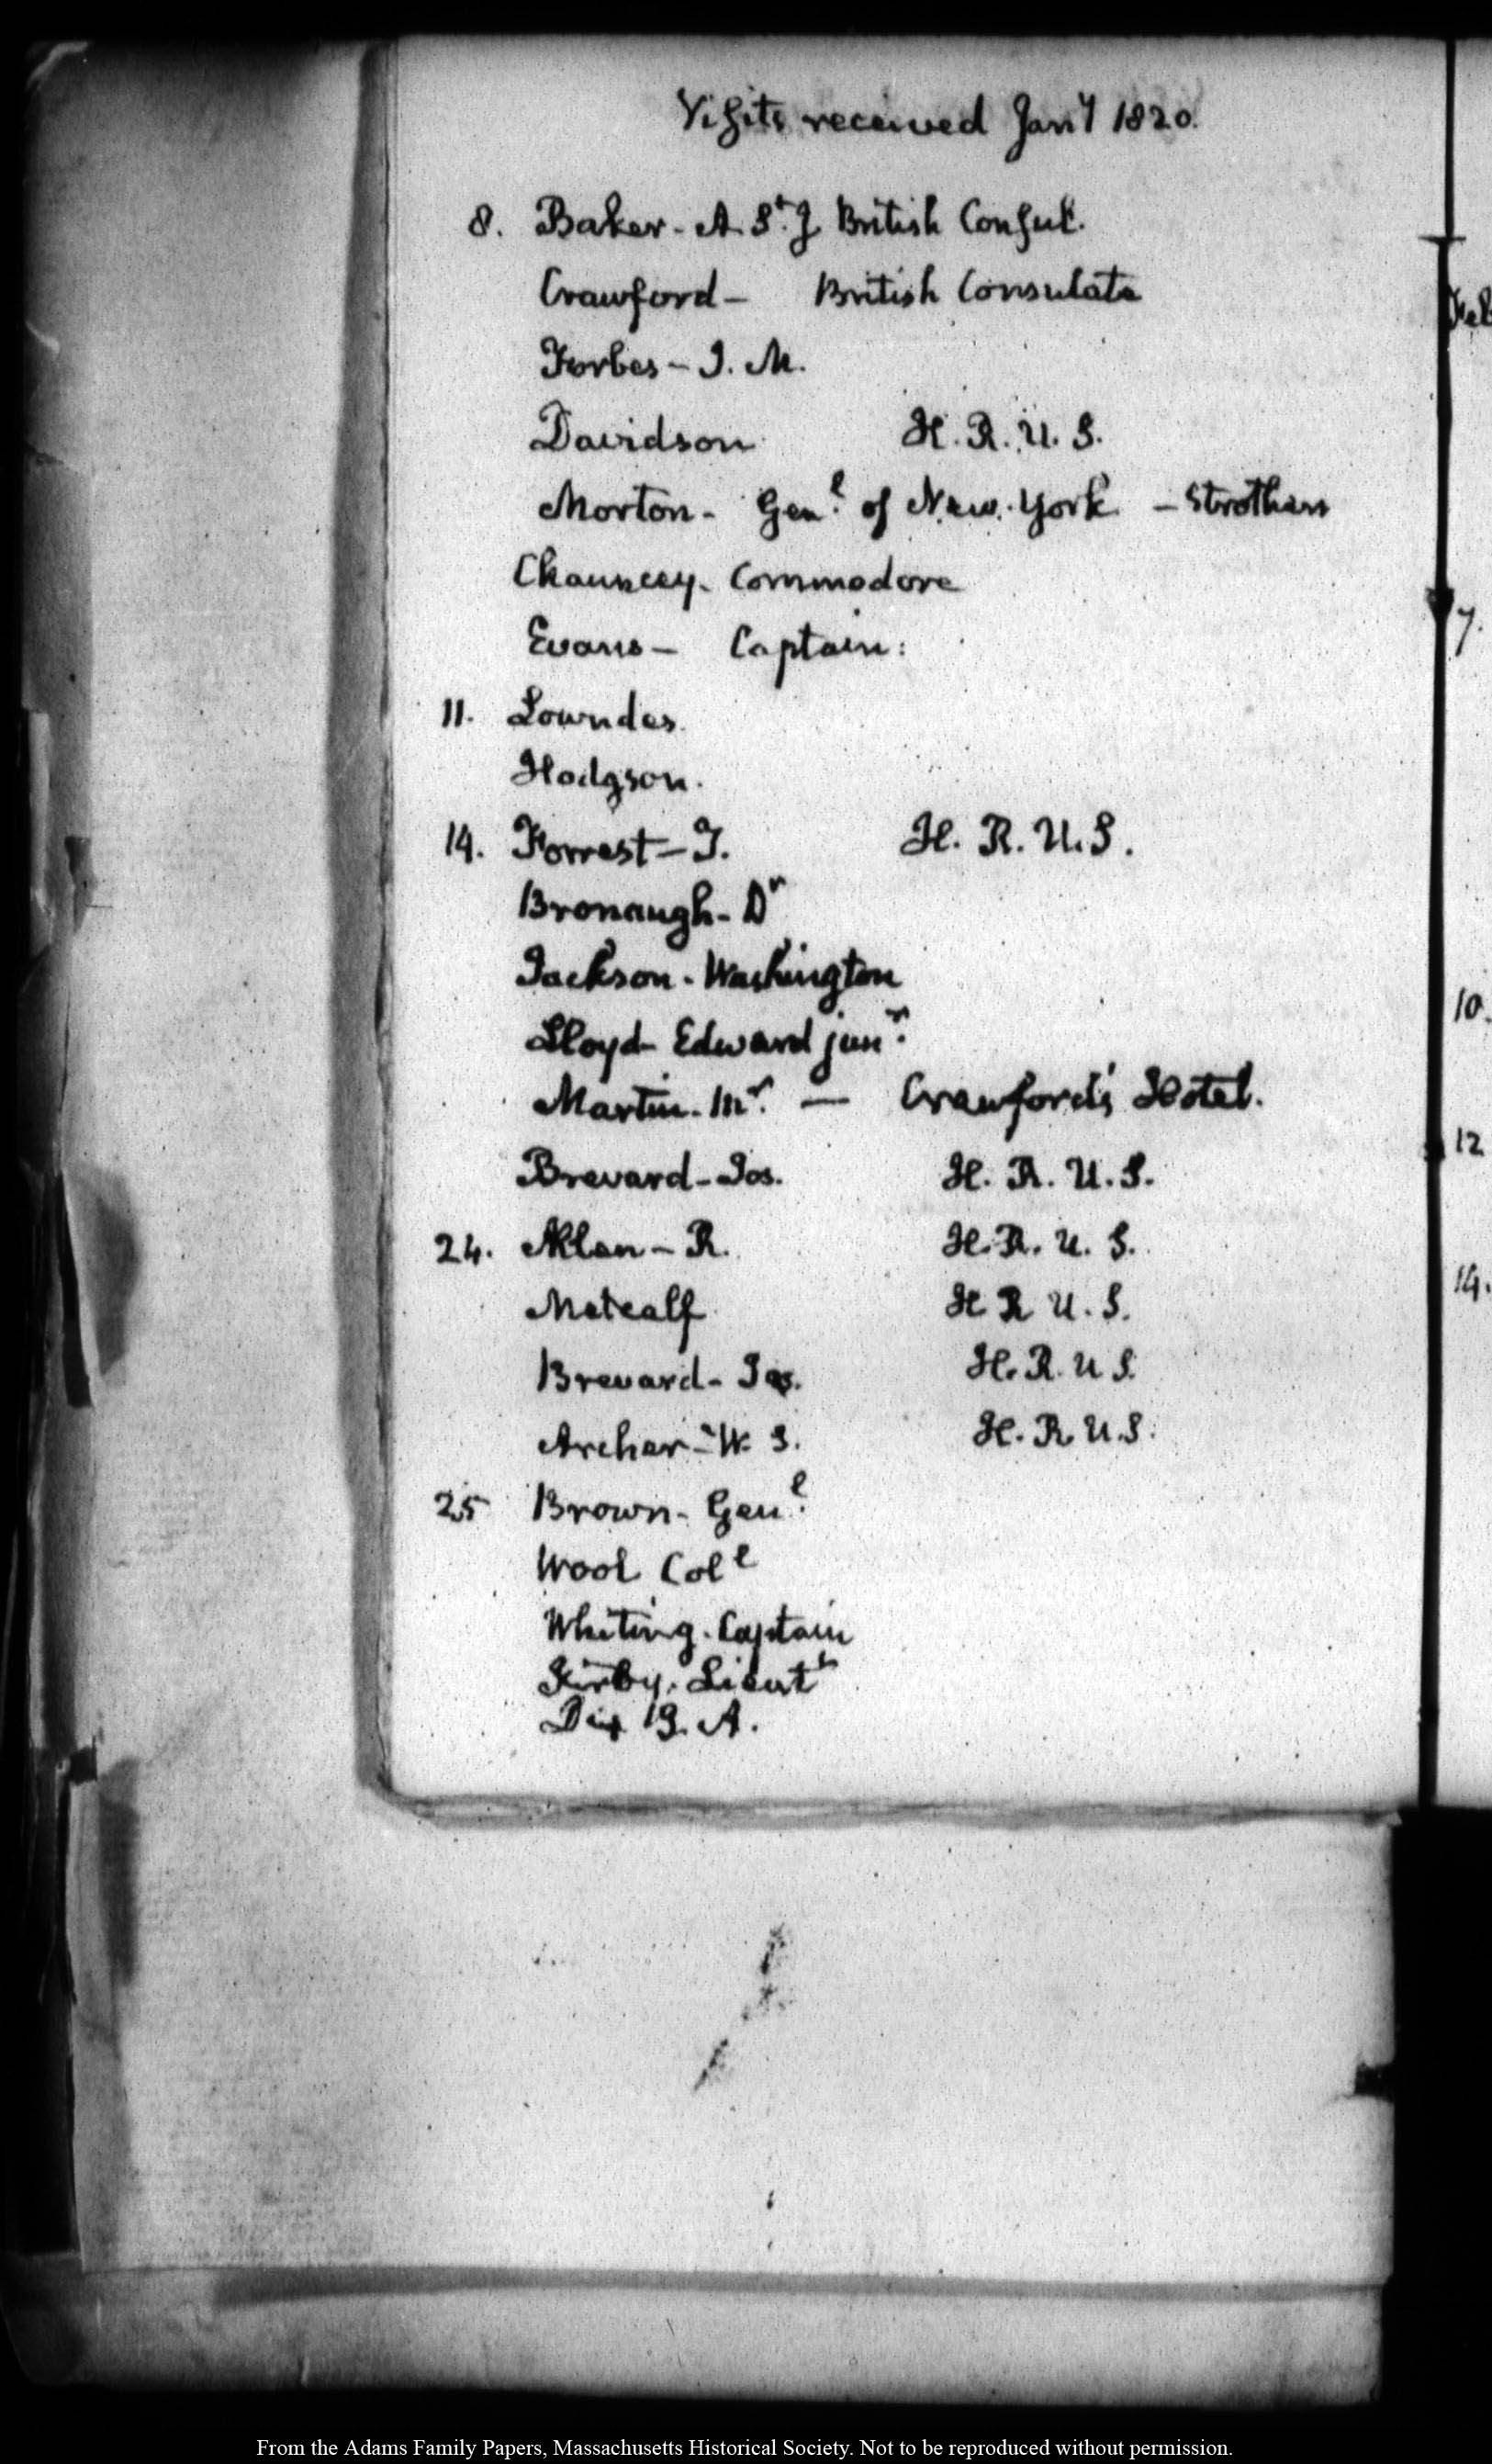 Visits received Jany 1820.
8. Baker - A. St. J. British Consul.
Crawford - British Consulate
Forbes - J. M.
Davidson H. R. U. S.
Morton - Genl. of New-York - Strothers
Chauncey - Commodore
Evans - Captain:
11. Lowndes.
Hodgson.
14. Forrest - T. H. R. U. S.
Bronaugh - Dr
Jackson - Washington
Lloyd - Edward junr.
Martin - Mr. — Crawford's Hotel.
Brevard - Jos. H. R. U. S.
24. Allen - R. H. R. U. S.
Metcalf H R U. S.
Brevard - Jos. H. R. U S.
Archer - W. S. H. R U. S.
25 Brown - Genl.
Wool Coll
Whiting - Captain
Kirby. Lieutt
Dix A.
7.
10.
12
14.
From the Adams Family Papers, Massachusetts Historical Society. Not to be reproduced without permission.